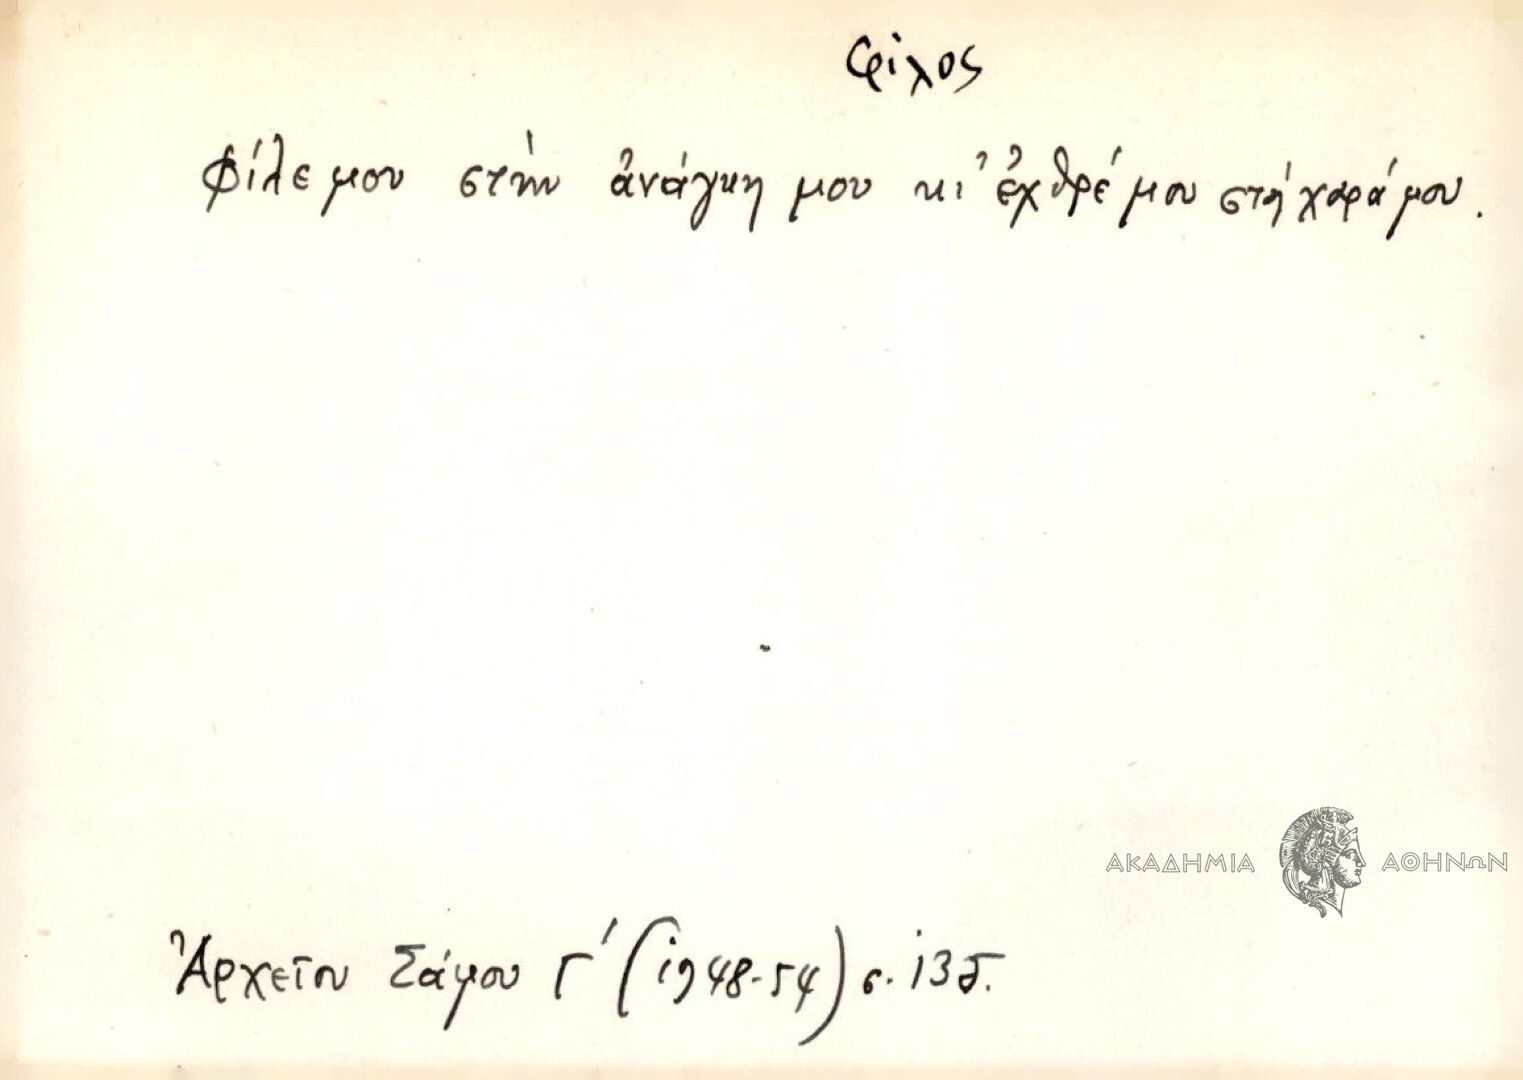 φίλος
Φίλε μου στὴν ἀνάγκη μου κι' ἐχθρέ μου στὴ χαρά μου.
ΑΚΑΔΗΜΙΑ ΑΘΗΝΩΝ
Ἀρχεῖον Σάμου Γ' (1948-54) σ. 135.